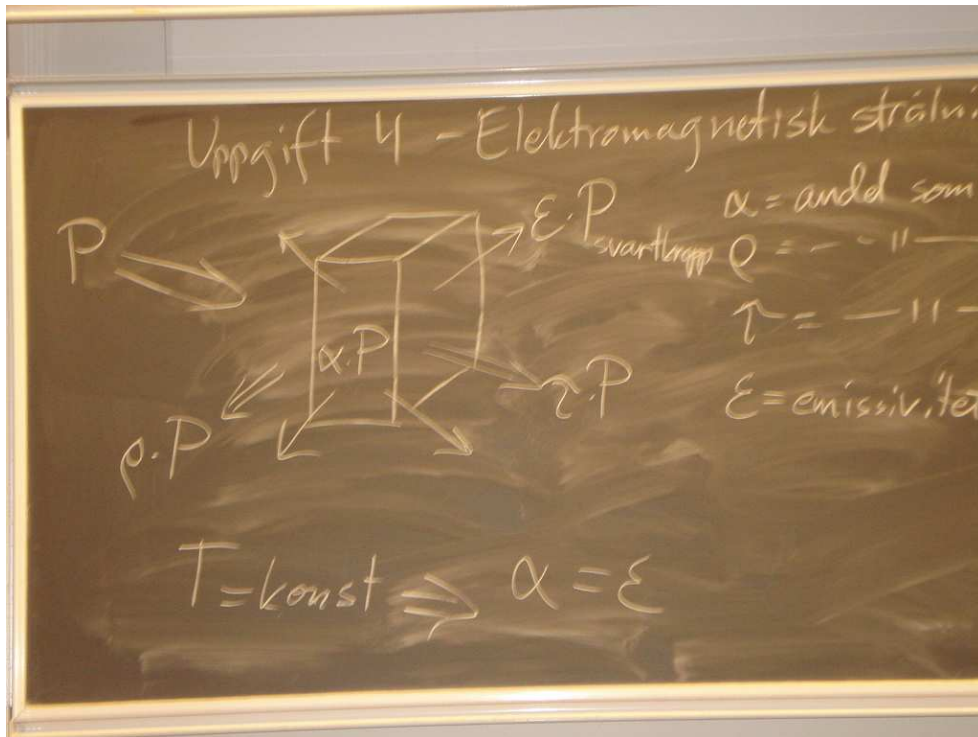 Uppgift 4 - Elektromagnetisk strålni
P
ε·P svartkropp
α = andel som
ρ = - - " -
α·P
τ = - " -
τ·P
ε = emissivite
ρ·P
T = konst ⇒ α = ε